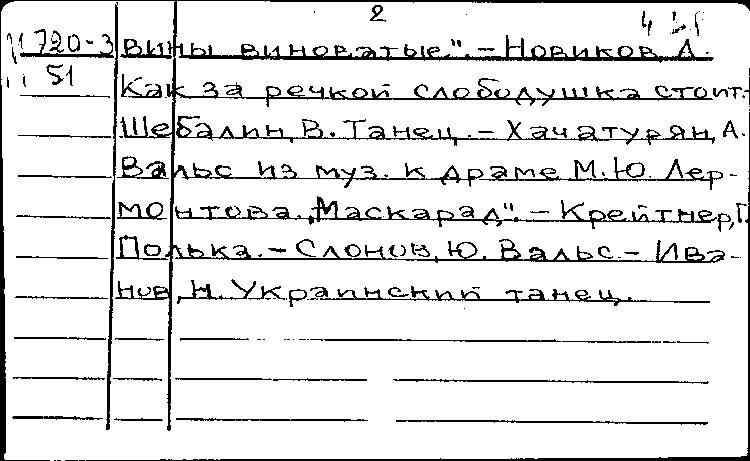 2
720-3 вины виноватые". – Новиков, А.
51 Как за речкой слободушка стоит.-
Шебалин, В. Танец. – Хачатурян, А.
Вальс из муз. к драме М.Ю. Лер-
монтова „Маскарад". – Крейтнер, Г.
Полька. – Слонов, Ю. Вальс – Ива-
нов, Н. Украинский танец.